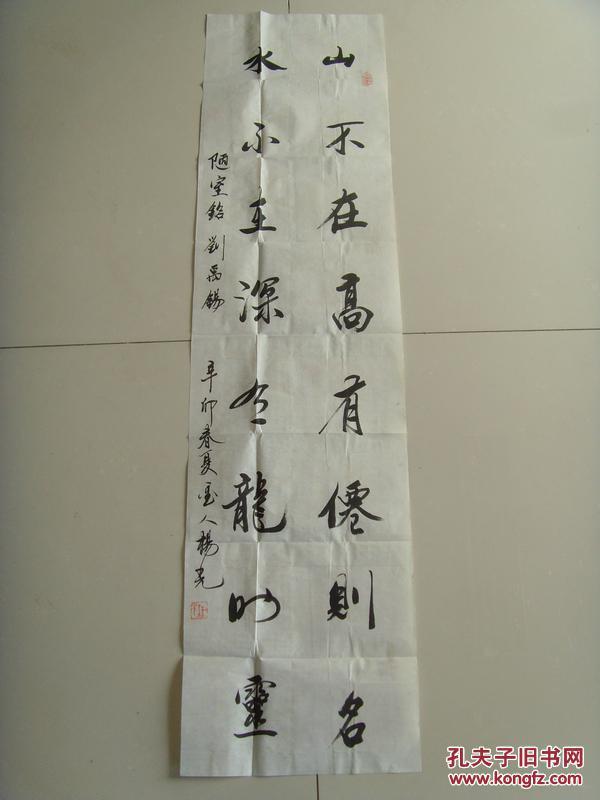 山不在高有僊則名
水不在深有龍則靈
陋室銘 劉禹錫 辛卯春夏 人楊光
孔夫子旧书网
www.kongfz.com